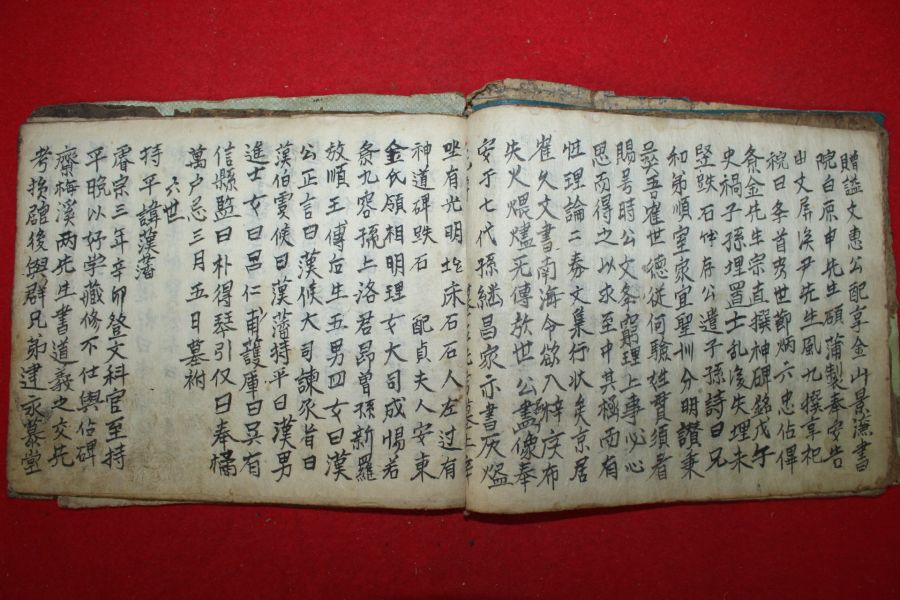 贈謚文惠公配享金山景濂書
院白原申先生碩蒲製奉安告
由文屏溪尹先生鳳九撰享祀
祝曰冬首穷世節炳六忠佔俾
条金先生宗直撰神碑銘戊午
史禍子孫埋置士乱後失埋未
竪跌石伡存公遺子孫詩曰兄
和弟順室家宜聖訓分明讚秉
彛吾崔世徳從何驗姓賢須看
賜号時公文条窮理上事必心
思而得之以求至中其極而有
性理論二奏文集行状矣京居
崔久文書南海令欲入梓序布
失火煨燼死傳於世公盡像奉
安于七代孫継昌家亦書灰燼
坐有光明坮床石石人左过有
神道碑跌石 配貞夫人安東
金氏領相明理女大司成惕若
条九容孫上洛君昂曽孫新羅
敬順王傳后生五男四女曰漢
公正言曰漢候大司諫次者曰
漢伯虞候曰漢藩持平曰漢男
進士女曰呂仁甫護庫曰吳有
信縣監曰朴得琴引仅曰奉橘
萬户忌三月五日墓祔
六世
持平諱漢藩
睿宗三年辛卯登文科官至持
平晩以好学藏修不仕與佔碑
齋梅溪两先生書道義之交先
考捨廬後與群兄弟建永慕堂